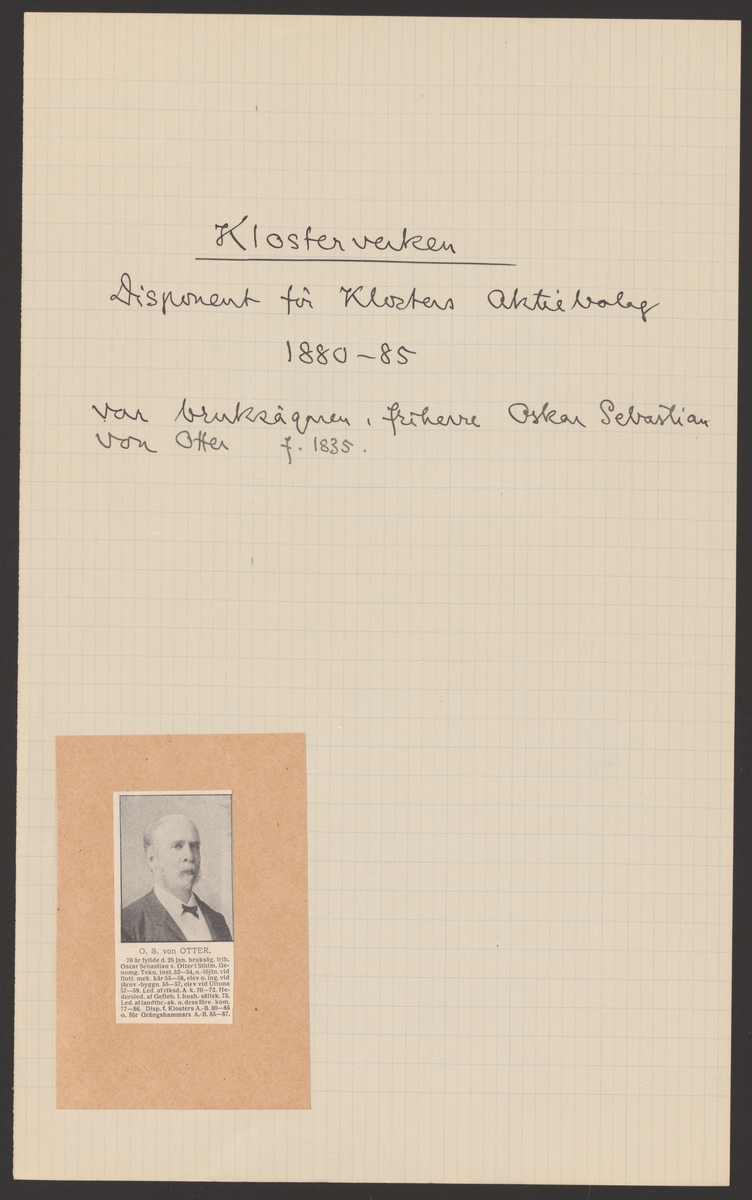 Klosterverken
Disponent för Klosters Aktiebolag
1880-85
var bruksägaren, friherre Oskar Sebastian
von Otter f. 1835.
O. S. von OTTER.
70 år fyllde d. 26 jan. bruksäg. frih.
Oscar Sebastian v. Otter i Sthlm. Ge-
nomg. Tekn. inst. 52—54, u.-löjtn. vid
flott. mek. kår 55—58, elev o. ing. vid
järnv.-byggn. 55—57, elev vid Ultuna
57—59. Led. af riksd. A. k. 70—72. He-
dersled. af Gefleb. l. hush. sällsk. 73.
Led. af landtbr.-ak. o. dess förv. kom.
77—86. Disp. f. Klosters A.-B. 80—85
o. för Grängshammars A.-B. 85—87.